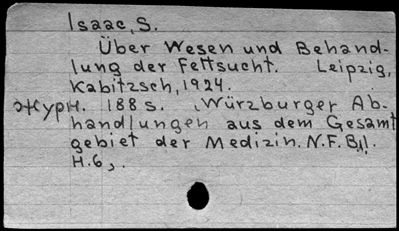 Isaac, S.
Über Wesen und Behand-
lung der Fettsucht. Leipzig,
Kabitzsch, 1924.
Журн. 188 s. Würzburger Ab-
handlungen aus dem Gesamt
gebiet der Medizin. N.F. Bd.
H.6,.